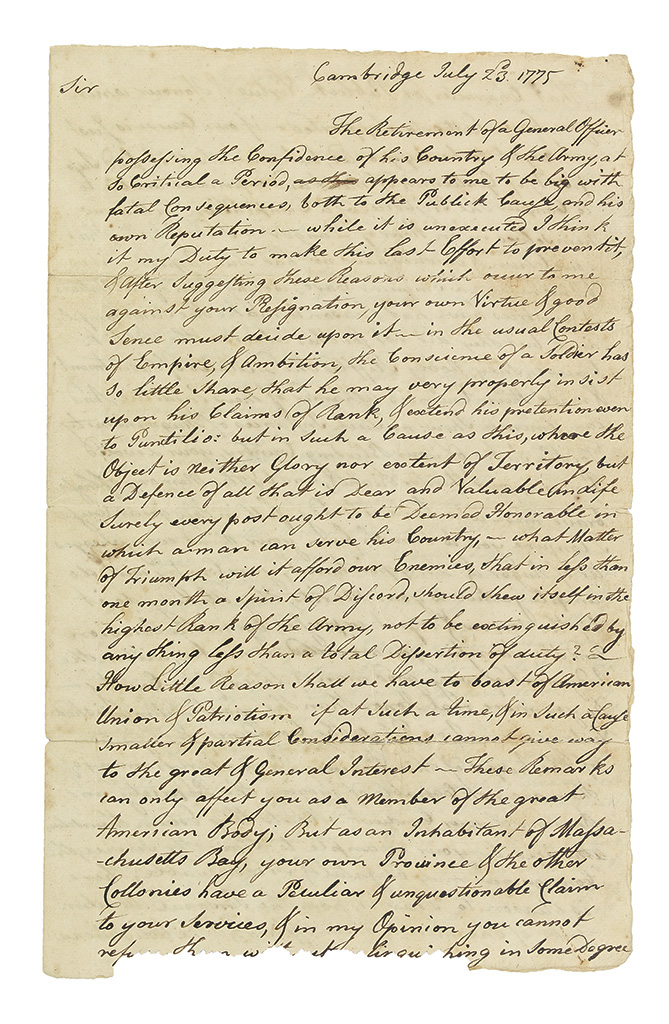 Cambridge July 23d. 1775
Sir
The Retirement of a General Officer
possessing the Confidence of his Country & the Army, at
so Critical a Period, as this appears to me to be big with
fatal Consequences, both to the Publick Cause, and his
own Reputation. — while it is unexecuted I think
it my Duty to make this last Effort to prevent it,
& after Suggesting these Reasons which occur to me
against your Resignation, your own Virtue & good
Sence must decide upon it — in the usual Contests
of Empire, & Ambition, the Conscience of a Soldier has
so little Share, that he may very properly insist
upon his Claims of Rank, & extend his pretention even
to Puntilio: but in Such a Cause as this, where the
Object is neither Glory nor extent of Territory, but
a Defence of all that is Dear and Valuable in Life
Surely every post ought to be Deemed Honorable in
which a man can serve his Country, — what Matter
of Triumph will it afford our Enemies, that in less than
one month a Spirit of Discord, should shew itself in the
highest Rank of the Army, not to be extinguished by
any thing less than a total Dissertion of duty? —
How Little Reason Shall we have to boast of American
Union & Patriotism if at Such a time, & in Such a Cause
smaller & partial Considerations cannot give way
to the great & General Interest — These Remarks
can only affect you as a Member of the great
American Body; But as an Inhabitant of Massa-
-chusetts Bay, your own Province & the other
Collonies have a Peculiar & unquestionable Claim
to your Services, & in my Opinion you cannot
in Some Degree